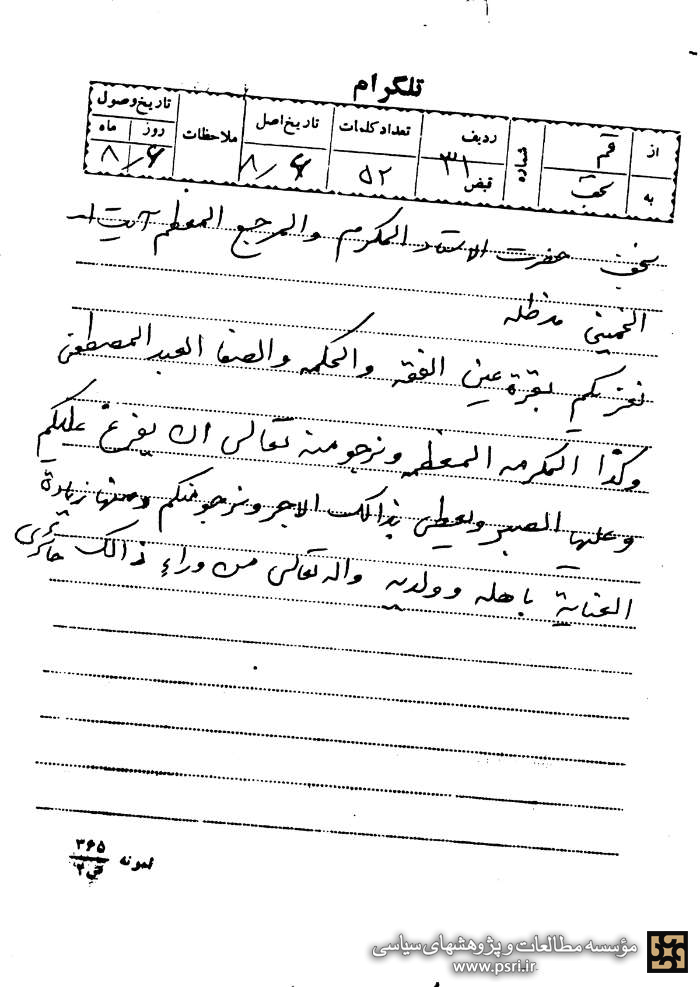 تلگرام
از قم
به نجف
شماره
ردیف ۳۱
قبض
تعداد کلمات ۵۲
تاریخ اصل ۸/۶
ملاحظات
تاریخ وصول
روز ماه
۸/۶
نجف حضرت الاستاد المکرم والمرجع المعظم آیت اله
الخمینی مدظله
نعزیکم بقرة عین الفقه والحکمه والصفا العبد المصطفی
وکذا المکرمه المعظمه ونرجو منه تعالی ان یفرغ علیکم
وعلیها الصبر ویعطی بذالک الاجر ونرجو منکم ومنها زیادة
العنایة باهله وولدیه واله تعالی من وراء ذالک حائری
نمونه ۳۶۵
مؤسسه مطالعات و پژوهشهای سیاسی
www.psri.ir